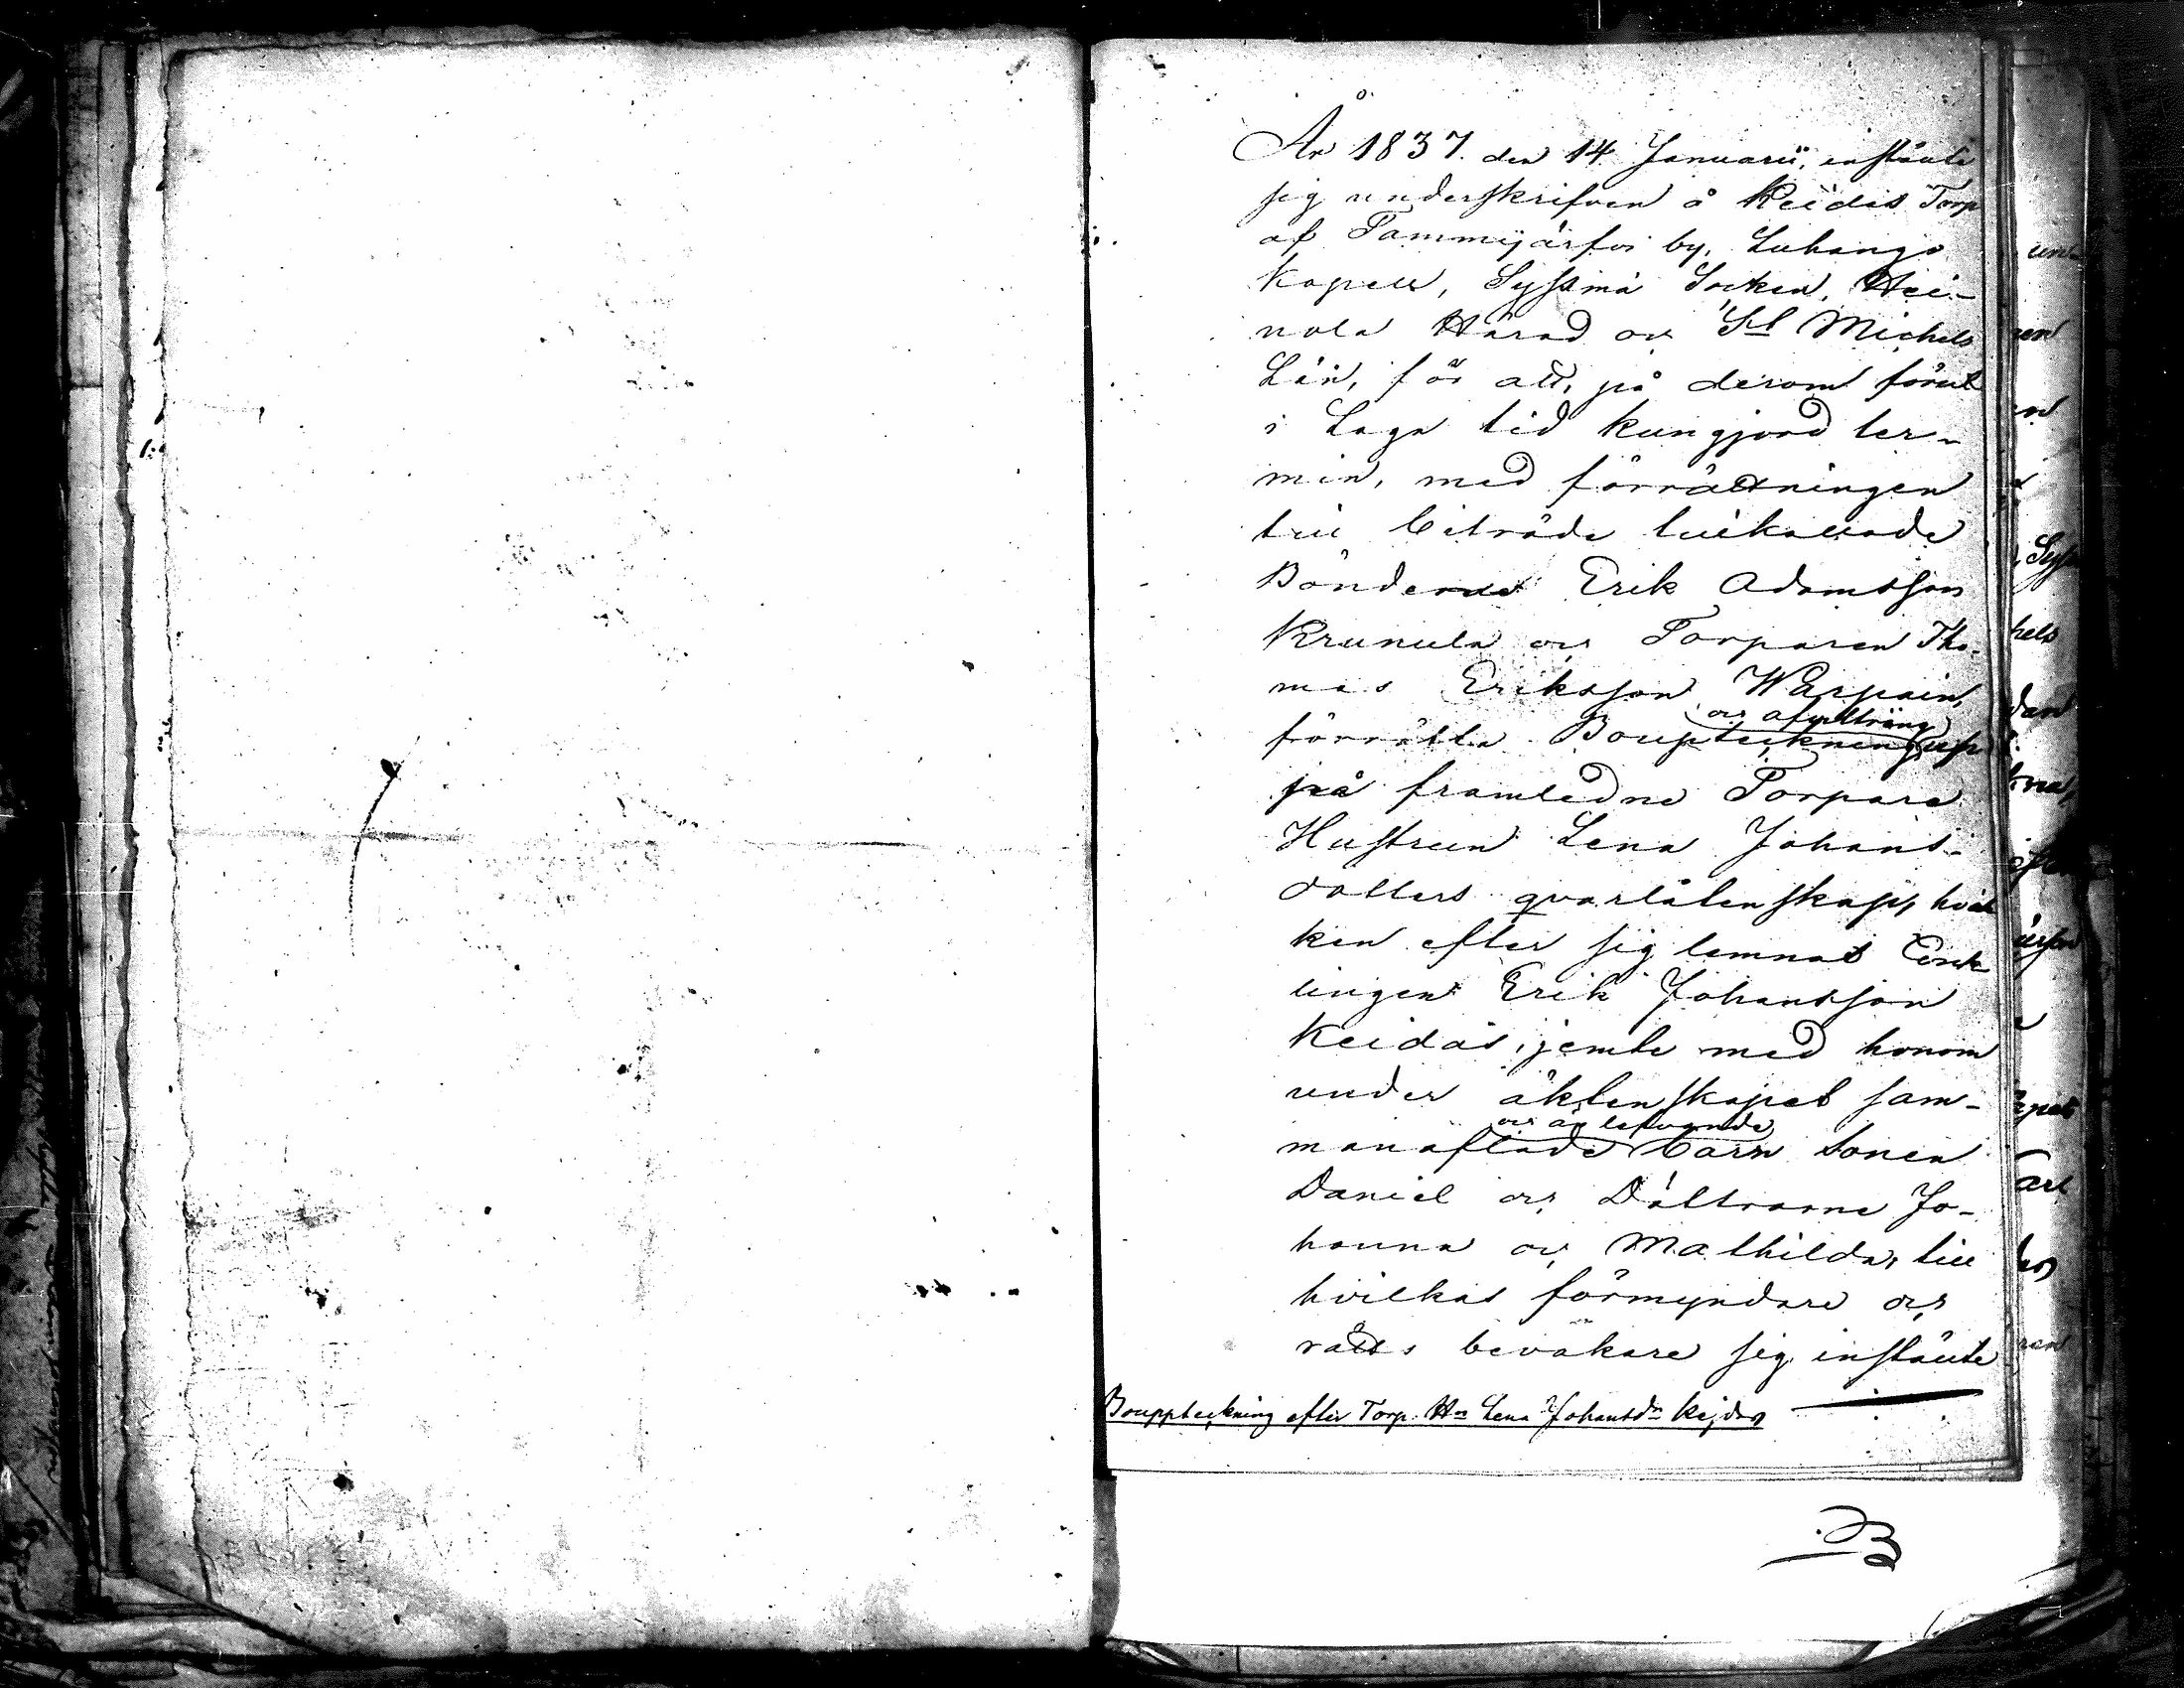 År 1837. den 14 Januarii, instäute
sig underskrifven å Keidas Torp
af Tammijärfvi by, Luhango
Kapell, Syssmä Socken, Hei-
nola Härad och St Michels
Län, för att, på derom förut
i Laga tid kungjord ter-
min, med förrättningen
till biträde tillkallade
Bönderne Erik Adamsson
Krunula och Torparen Tho-
mas Eriksson Warpain,
och afvittring
förrätta Bouptekning
på framledne Torpare
Hustrun Lena Johans-
dotters qvarlåtenskap, hvil
ken efter sig lemnat Enk
lingen Erik Johansson
Keidas, jemte med honom
under äktenskapet sam-
och än lefvande
manaflade barn Sonen
Daniel och Döttrarne Jo-
hanna och Mathilda, till
hvilkas förmyndare och
rätts bevakare sig instäute
Bouppteckning efter Torp. Hn Lena Johansdr Kejdas
un-
ren
Syss
hels
dan